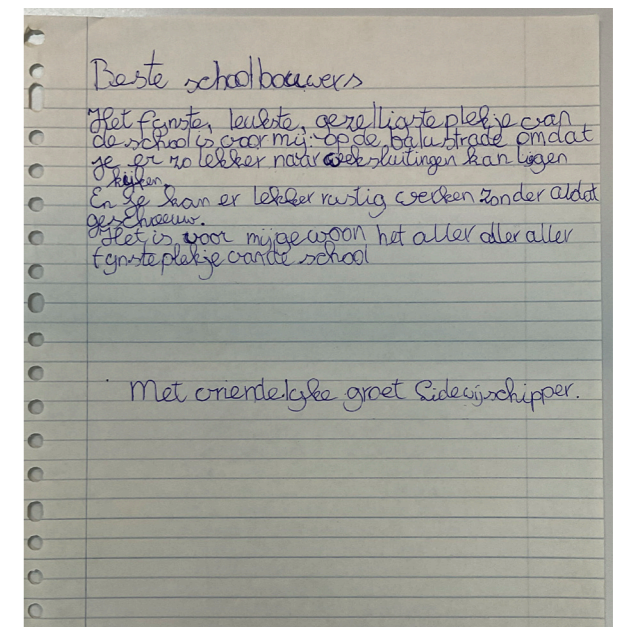 Beste schoolbouwers
Het fijnste, leukste, gezelligste plekje van
de school is voor mij: op de balustrade omdat
je er zo lekker naar weeksluitingen kan liggen
kijken.
En je kan er lekker rustig werken zonder al dat
geschreeuw.
Het is voor mij gewoon het aller aller aller
fijnste plekje van de school
Met vriendelijke groet Sidewijschipper.